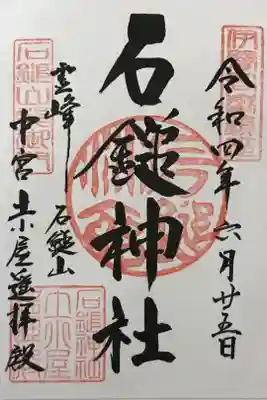 令和四年 六月廿五日
石鎚神社
霊峰 石鎚山
中宮 土小屋遥拝殿
石鎚神社
土小屋